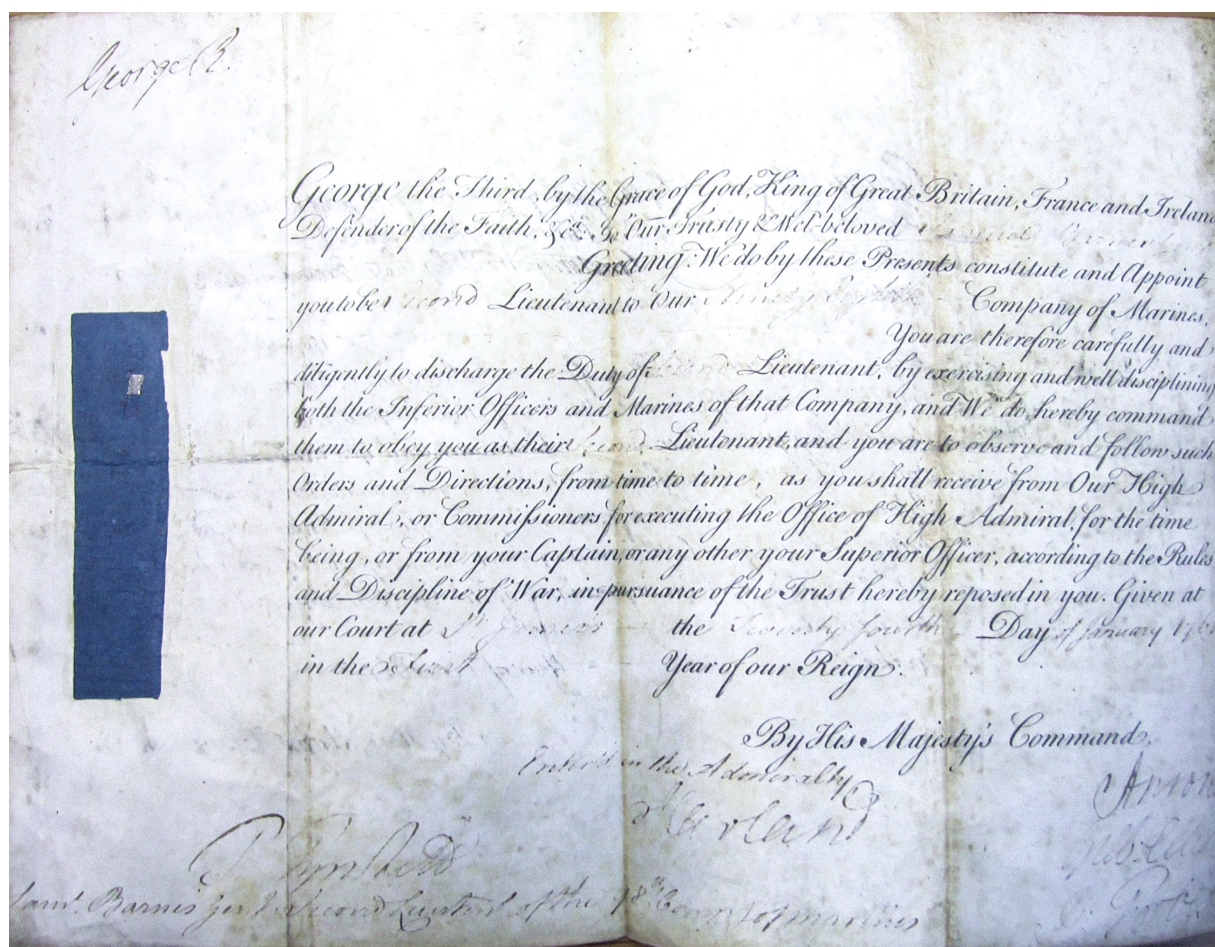 George R.
George the Third, by the Grace of God, King of Great Britain, France and Ireland
Defender of the Faith, &c. To Our Trusty & Wel-beloved
Greeting: We do by these Presents constitute and Appoint
you to be Second Lieutenant to Our Ninety Eighth Company of Marines.
You are therefore carefully and
diligently to discharge the Duty of Second Lieutenant, by exercising and well disciplining
both the Inferior Officers and Marines of that Company, and We do hereby command
them to obey you as their Second Lieutenant, and you are to observe and follow such
Orders and Directions, from time to time, as you shall receive from Our High
Admiral, or Commissioners for executing the Office of High Admiral, for the time
being, or from your Captain, or any other your Superior Officer, according to the Rules
and Discipline of War, in pursuance of the Trust hereby reposed in you. Given at
our Court at St. James's the Twenty fourth Day of January
in the First Year of our Reign.
By His Majesty's Command,
Enter'd in the Admiralty
Anson
Saml. Barnes Gent. Second Lieutent. of the 98th. Comp. of Marines